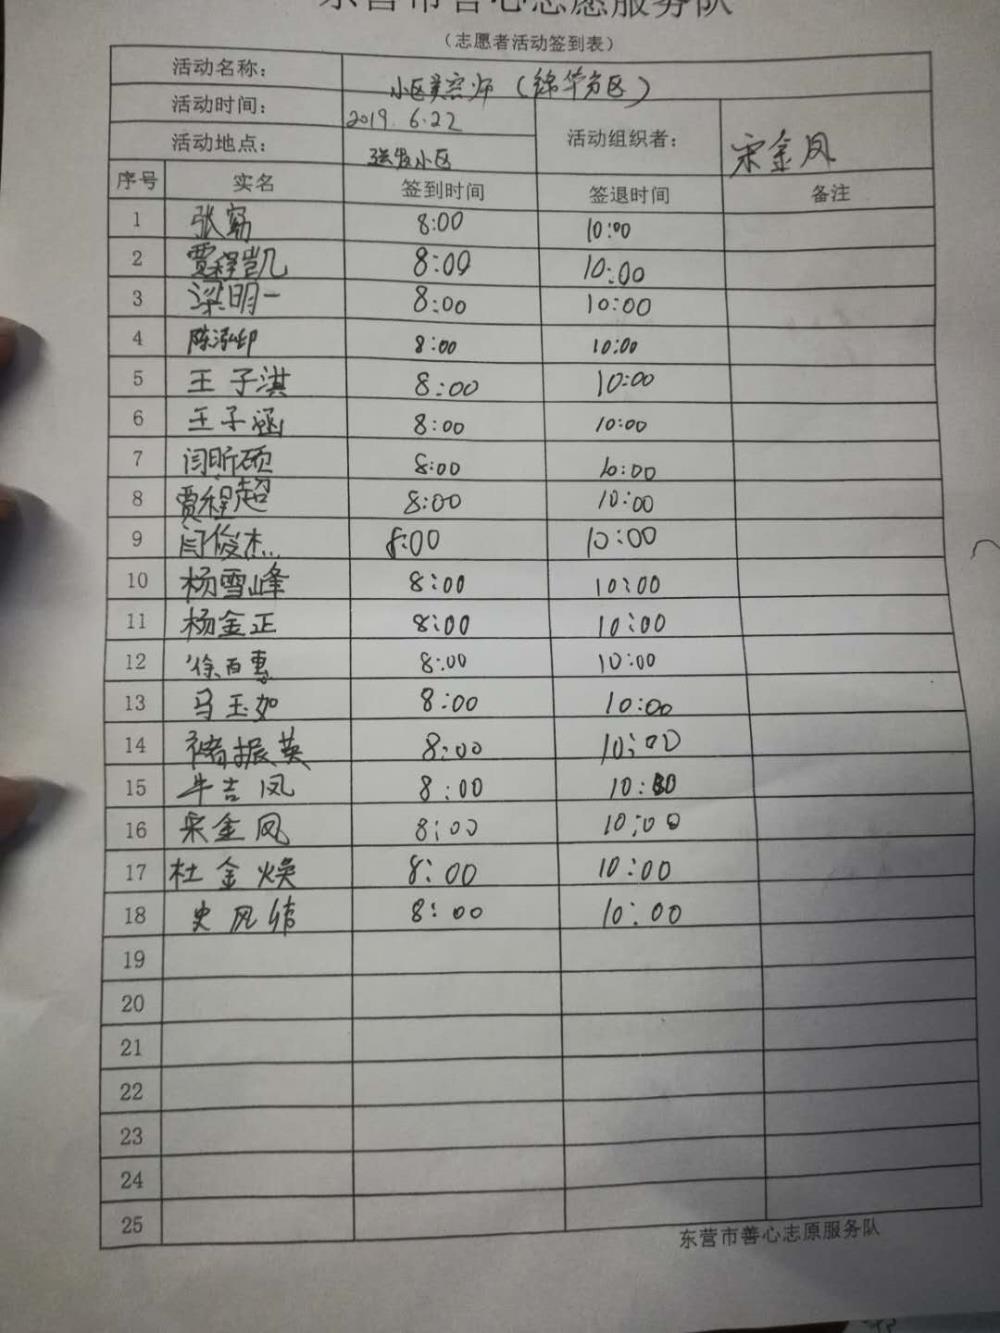 东营市善心志愿服务队
（志愿者活动签到表）
活动名称： 小区美容师（锦华分区）
活动时间： 2019.6.22
活动组织者： 宋金凤
活动地点： 小区
序号 实名 签到时间 签退时间 备注
1 张 8:00 10:00
2 贾程凯 8:00 10:00
3 梁明一 8:00 10:00
4 陈泓印 8:00 10:00
5 王子淇 8:00 10:00
6 王子涵 8:00 10:00
7 闫昕硕 8:00 10:00
8 贾程超 8:00 10:00
9 闫俊杰 8:00 10:00
10 杨雪峰 8:00 10:00
11 杨金正 8:00 10:00
12 徐百惠 8:00 10:00
13 马玉如 8:00 10:00
14 褚振英 8:00 10:00
15 牛吉凤 8:00 10:00
16 宋金凤 8:00 10:00
17 杜金焕 8:00 10:00
18 史风 8:00 10:00
19
20
21
22
23
24
25
东营市善心志原服务队